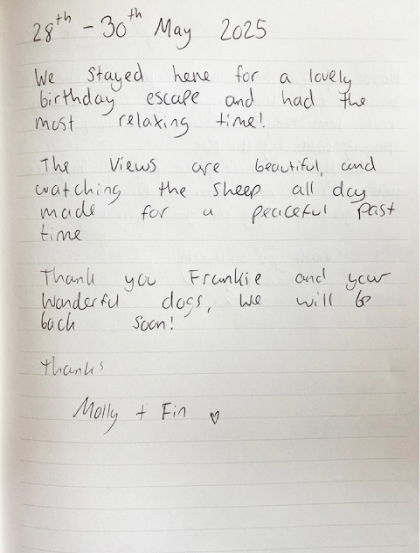 28th - 30th May 2025
We stayed here for a lovely
birthday escape and had the
most relaxing time!
The views are beautiful, and
watching the sheep all day
made for a peaceful past
time
Thank you Frankie and your
wonderful dogs, we will be
back soon!
thanks
Molly + Fin ♡